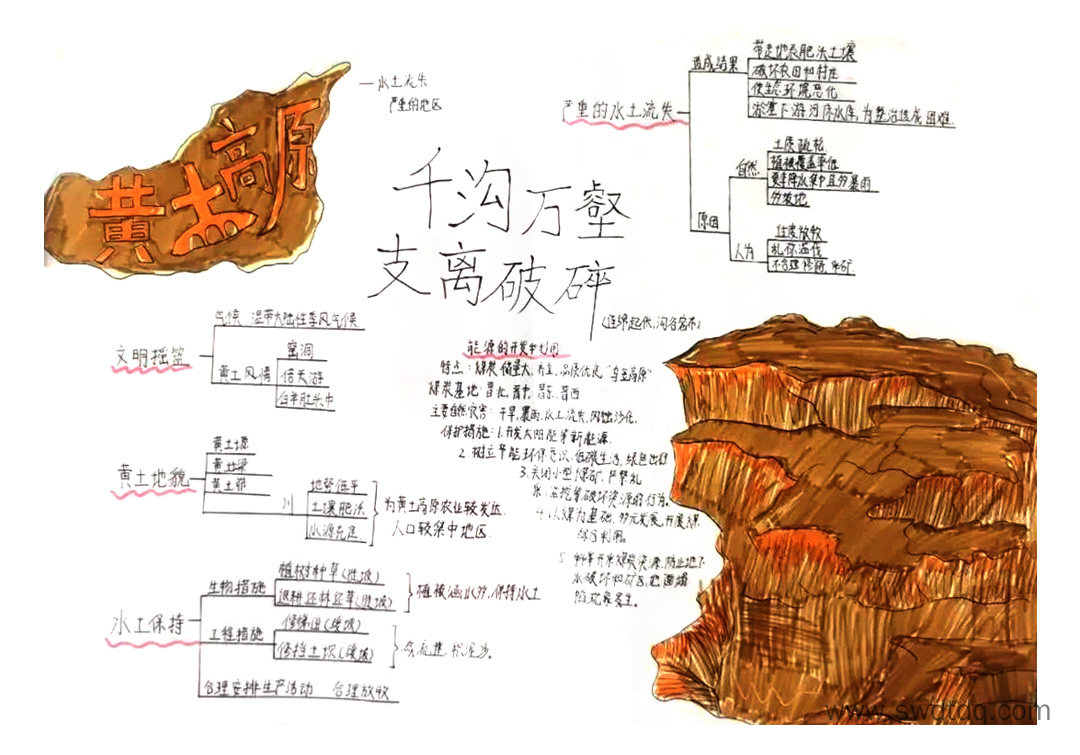 黄土高原
水土流失
严重的地区
千沟万壑
支离破碎
(连绵起伏,沟谷密布)
严重的水土流失
造成结果
带走地表肥沃土壤
破坏农田和村庄
使生态环境恶化
淤塞下游河床水库,为整治造成困难
原因
自然
土质疏松
植被覆盖率低
夏季降水集中且多暴雨
多坡地
人为
过度放牧
乱砍滥伐
不合理修路,采矿
文明摇篮
气候 温带大陆性季风气候
黄土风情
窑洞
信天游
白羊肚头巾
黄土地貌
黄土塬
黄土梁
黄土峁
川
地势低平
土壤肥沃
水源充足
为黄土高原农业较发达
人口较集中地区
水土保持
生物措施
植树种草(陡坡)
退耕还林还草(陡坡)
植被涵水分,保持水土
工程措施
修梯田(缓坡)
修挡土坝(缓坡)
合理安排生产活动 合理放牧
能源的开发和利用:
特点:煤炭 储量大,品质优良“乌金高原”
煤炭基地:晋北,晋中,晋东,晋西
主要自然灾害:干旱,暴雨,水土流失,风蚀沙化
保护措施:1.开发太阳能等新能源
2.树立节能环保意识,低碳生活,绿色出行
3.关闭小型煤矿,严禁乱
采,滥挖等破坏资源的行为。
4.以煤为基础,多元发展,开展综
合利用。
5.科学开采煤炭资源,防止地下
水破坏和矿区地面塌
陷现象发生。
www.swdtdq.com